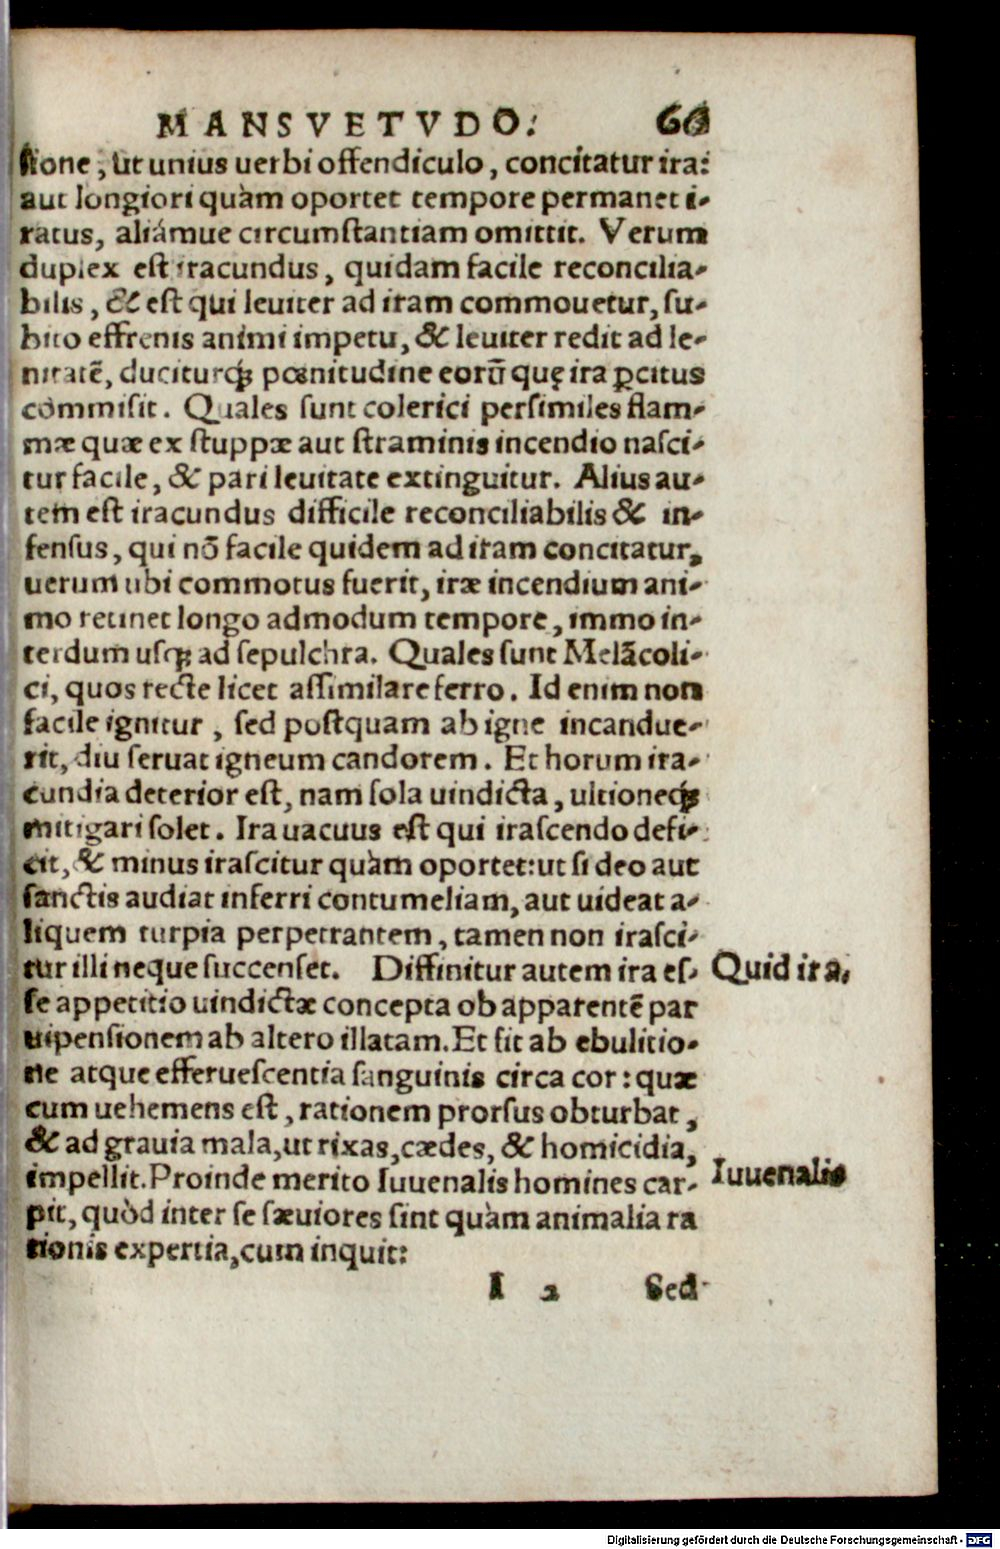 MANSVETVDO.
sione, ut unius uerbi offendiculo, concitatur ira:
aut longiori quàm oportet tempore permanet i-
ratus, aliámue circumstantiam omittit. Verum
duplex est iracundus, quidam facile reconcilia-
bilis, & est qui leuiter ad iram commouetur, su-
bito effrenis animi impetu, & leuiter redit ad le-
nitatē, duciturq́; pœnitudine eorū quę ira ꝑcitus
commisit. Quales sunt colerici persimiles flam-
mæ quæ ex stuppæ aut straminis incendio nasci-
tur facile, & pari leuitate extinguitur. Alius au-
tem est iracundus difficile reconciliabilis & in-
fensus, qui nō facile quidem ad iram concitatur,
uerum ubi commotus fuerit, iræ incendium ani-
mo retinet longo admodum tempore, immo in-
terdum usq; ad sepulchra. Quales sunt Melācoli-
ci, quos recte licet assimilare ferro. Id enim non
facile ignitur, sed postquam ab igne incandue-
rit, diu seruat igneum candorem. Et horum ira-
cundia deterior est, nam sola uindicta, ultioneq́;
mitigari solet. Ira uacuus est qui irascendo defi-
cit, & minus irascitur quàm oportet: ut si deo aut
sanctis audiat inferri contumeliam, aut uideat a-
liquem turpia perpetrantem, tamen non irasci-
tur illi neque succenset. Diffinitur autem ira es- Quid ira,
se appetitio uindictæ concepta ob apparentē par
uipensionem ab altero illatam. Et fit ab ebulitio-
ne atque efferuescentia sanguinis circa cor: quæ
cum uehemens est, rationem prorsus obturbat,
& ad grauia mala, ut rixas, cædes, & homicidia,
impellit. Proinde merito Iuuenalis homines car- Iuuenalis
pit, quòd inter se sæuiores sint quàm animalia ra
tionis expertia, cum inquit:
I 2 Sed
Digitalisierung gefördert durch die Deutsche Forschungsgemeinschaft - DFG